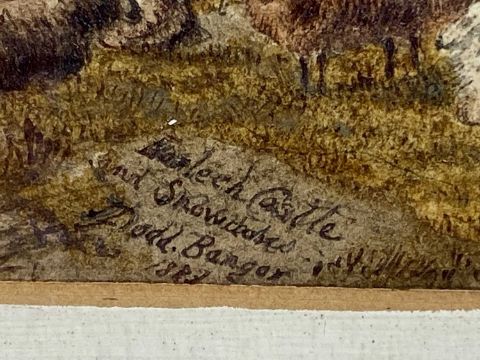 Harlech Castle
and Snowdon
Dodd. Bangor
188